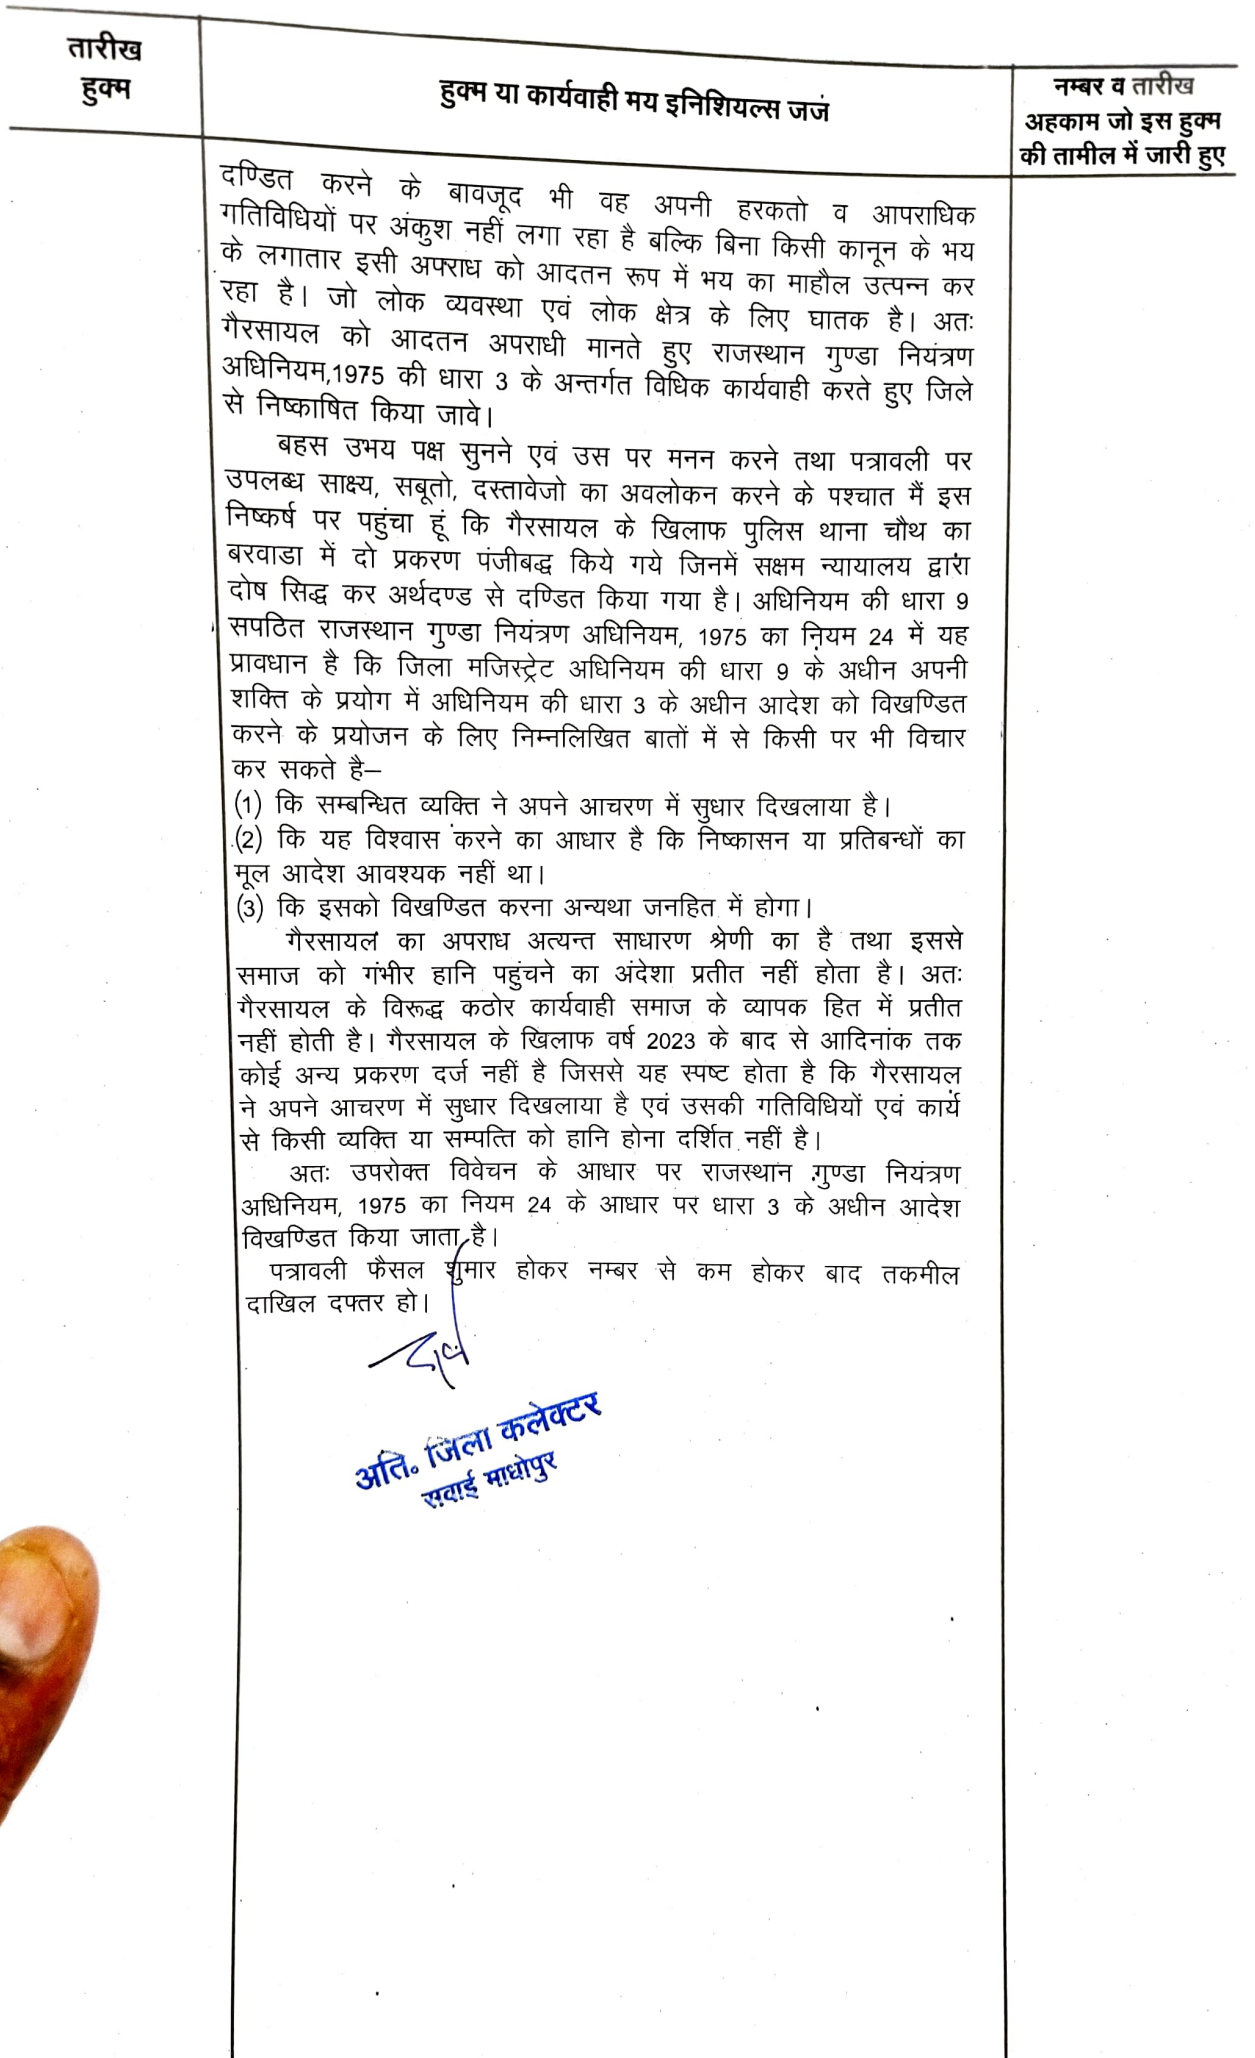 तारीख
हुक्म
हुक्म या कार्यवाही मय इनिशियल्स जजं
नम्बर व तारीख
अहकाम जो इस हुक्म
की तामील में जारी हुए
दण्डित करने के बावजूद भी वह अपनी हरकतो व आपराधिक
गतिविधियों पर अंकुश नहीं लगा रहा है बल्कि बिना किसी कानून के भय
के लगातार इसी अपराध को आदतन रूप में भय का माहौल उत्पन्न कर
रहा है। जो लोक व्यवस्था एवं लोक क्षेत्र के लिए घातक है। अतः
गैरसायल को आदतन अपराधी मानते हुए राजस्थान गुण्डा नियंत्रण
अधिनियम,1975 की धारा 3 के अन्तर्गत विधिक कार्यवाही करते हुए जिले
से निष्काषित किया जावे।
बहस उभय पक्ष सुनने एवं उस पर मनन करने तथा पत्रावली पर
उपलब्ध साक्ष्य, सबूतो, दस्तावेजो का अवलोकन करने के पश्चात मैं इस
निष्कर्ष पर पहुंचा हूं कि गैरसायल के खिलाफ पुलिस थाना चौथ का
बरवाडा में दो प्रकरण पंजीबद्ध किये गये जिनमें सक्षम न्यायालय द्वारा
दोष सिद्ध कर अर्थदण्ड से दण्डित किया गया है। अधिनियम की धारा 9
सपठित राजस्थान गुण्डा नियंत्रण अधिनियम, 1975 का नियम 24 में यह
प्रावधान है कि जिला मजिस्ट्रेट अधिनियम की धारा 9 के अधीन अपनी
शक्ति के प्रयोग में अधिनियम की धारा 3 के अधीन आदेश को विखण्डित
करने के प्रयोजन के लिए निम्नलिखित बातों में से किसी पर भी विचार
कर सकते है–
(1) कि सम्बन्धित व्यक्ति ने अपने आचरण में सुधार दिखलाया है।
(2) कि यह विश्वास करने का आधार है कि निष्कासन या प्रतिबन्धों का
मूल आदेश आवश्यक नहीं था।
(3) कि इसको विखण्डित करना अन्यथा जनहित में होगा।
गैरसायल का अपराध अत्यन्त साधारण श्रेणी का है तथा इससे
समाज को गंभीर हानि पहुंचने का अंदेशा प्रतीत नहीं होता है। अतः
गैरसायल के विरूद्ध कठोर कार्यवाही समाज के व्यापक हित में प्रतीत
नहीं होती है। गैरसायल के खिलाफ वर्ष 2023 के बाद से आदिनांक तक
कोई अन्य प्रकरण दर्ज नहीं है जिससे यह स्पष्ट होता है कि गैरसायल
ने अपने आचरण में सुधार दिखलाया है एवं उसकी गतिविधियों एवं कार्य
से किसी व्यक्ति या सम्पत्ति को हानि होना दर्शित नहीं है।
अतः उपरोक्त विवेचन के आधार पर राजस्थान गुण्डा नियंत्रण
अधिनियम, 1975 का नियम 24 के आधार पर धारा 3 के अधीन आदेश
विखण्डित किया जाता है।
पत्रावली फैसल शुमार होकर नम्बर से कम होकर बाद तकमील
दाखिल दफ्तर हो।
अति. जिला कलेक्टर
सवाई माधोपुर